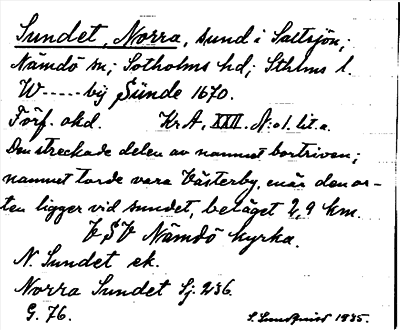 Sundet, Norra, sund i Saltsjön;
Nämdö sn; Sotholms hd; Sthlms l.
W----- by Sünde 1670.
Förf. okd. KrA, XXII. N:o 1. lit. a.
Den streckade delen av namnet bortriven;
namnet torde vara Västerby, enär den or-
ten ligger vid sundet, beläget 2,9 km.
VSV Nämdö kyrka.
N. Sundet ek.
Norra Sundet Sj. 236.
G. 76.
S. Lundqvist 1935.